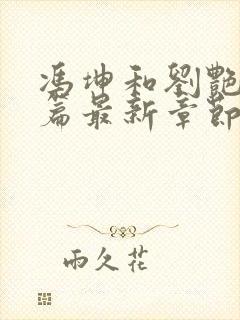 馮坤和劉艷
篇最新章節
雨久花